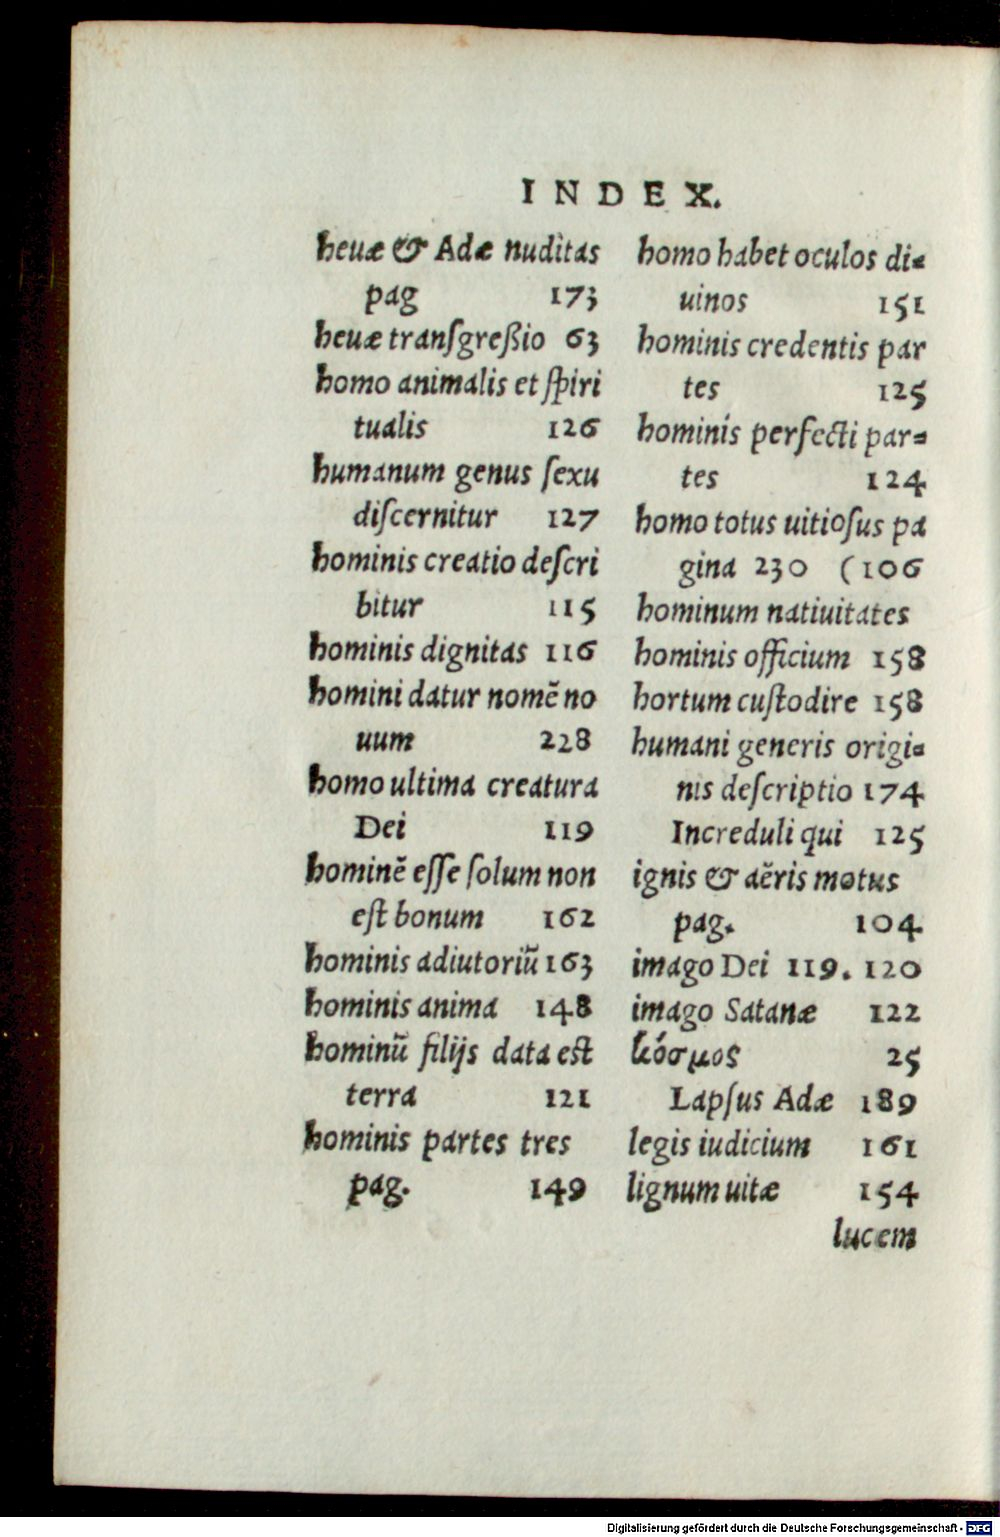 INDEX.
heuæ & Adæ nuditas
pag 173
heuæ transgreßio 63
homo animalis et ſpiri
tualis 126
humanum genus ſexu
diſcernitur 127
hominis creatio deſcri
bitur 115
hominis dignitas 116
homini datur nomẽ no
uum 228
homo ultima creatura
Dei 119
hominẽ eſſe ſolum non
eſt bonum 162
hominis adiutoriũ 163
hominis anima 148
hominũ filijs data eſt
terra 121
hominis partes tres
pag. 149
homo habet oculos di-
uinos 151
hominis credentis par
tes 125
hominis perfecti par-
tes 124
homo totus uitioſus pa
gina 230 (106
hominum natiuitates
hominis officium 158
hortum cuſtodire 158
humani generis origi-
nis deſcriptio 174
Increduli qui 125
ignis & aëris motus
pag. 104
imago Dei 119. 120
imago Satanæ 122
κόσμος 25
Lapſus Adæ 189
legis iudicium 161
lignum uitæ 154
lucem
Digitalisierung gefördert durch die Deutsche Forschungsgemeinschaft - DFG